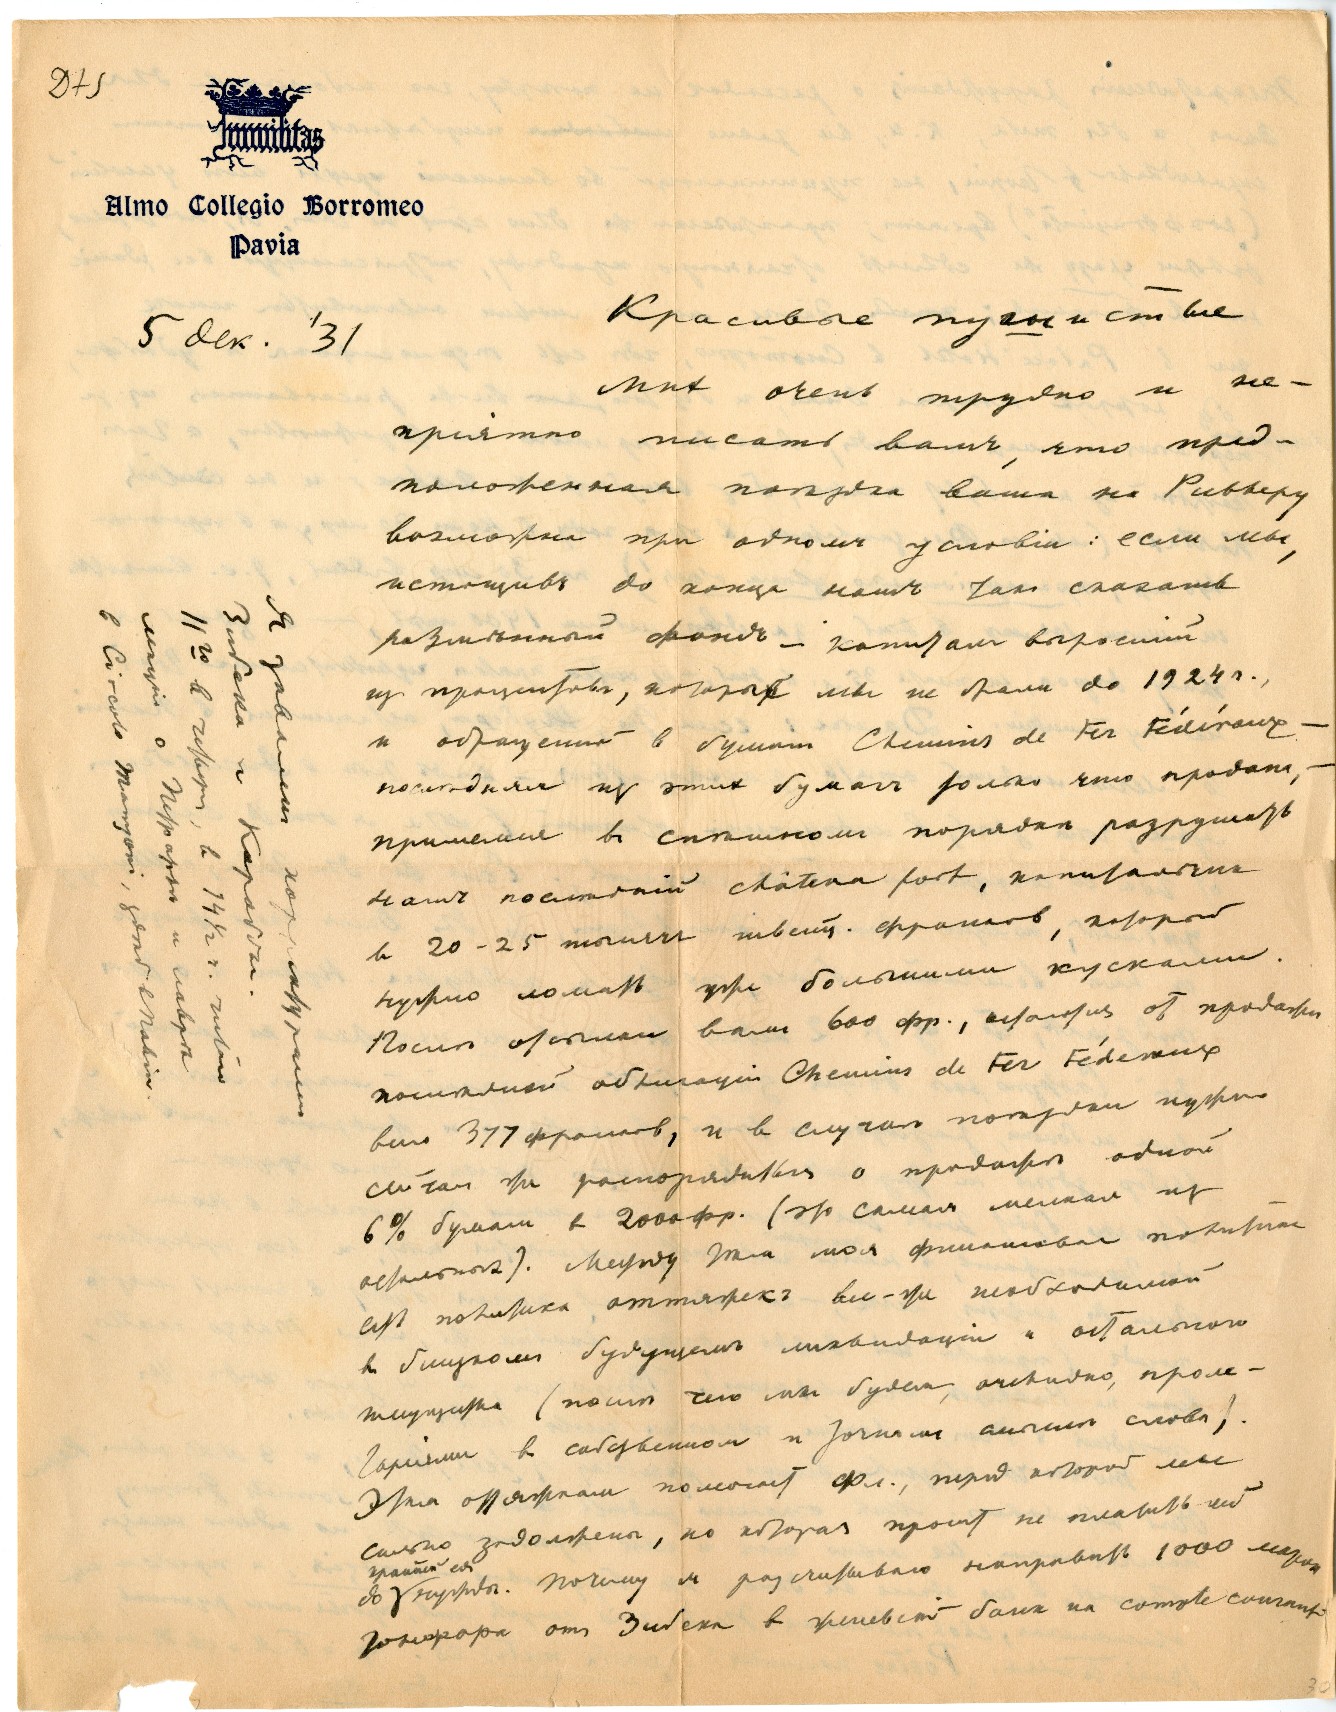 Humilitas
Almo Collegio Borromeo
Pavia
5 дек. '31
Красивые
Мнѣ очень трудно и не-
пріятно писать вамъ, что пред-
положенная поѣздка ваша на Ривьеру
возможна при одномъ условіи: если мы,
истощивъ до конца нашъ такъ сказать
размѣнный фондъ – капиталъ выросшій
изъ процентовъ, которые мы не брали до 1924 г.,
и обращенный в бумаги Chemins de Fer Fédéraux –
послѣдняя из этих бумагъ только что продана, –
примемся в спѣшномъ порядкѣ разрушать
нашъ послѣдній château fort, капитальчик
в 20-25 тысячъ швейц. франков, который
нужно ломать уже большими кусками.
Послѣ отсылки вамъ 600 фр., остаются от продажи
послѣдней облигаціи Chemins de Fer Féderaux
всего 377 франков, и в случаѣ поѣздки нужно
сейчас же распорядиться о продажѣ одной
6% бумаги в 2000 фр. (это самая мелкая из
остальных). Между тѣм моя финансовая политика
есть политика оттяжекъ все-же необходимой
в близком будущемъ ликвидаціи и остального
имущества (послѣ чего мы будем, очевидно, проле-
таріями в собственном и точном смыслѣ слова).
Этим оттяжкам помогает Фл., перед которой мы
сильно задолжены, но которая просит не платить ей
до крайней ея нужды. Почему я разсчитываю направить 1000 марок
гонорара отъ Зибека в женевскій банк на compte courant
Я завален корректурами
Зибека и Карабды.
11го в четверг, в 14½ ч. читаю
лекцію о Петраркѣ и лаврах
в Circolo Manzoni,